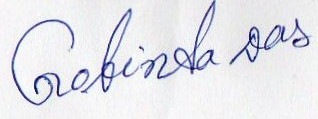 Gobinda Das